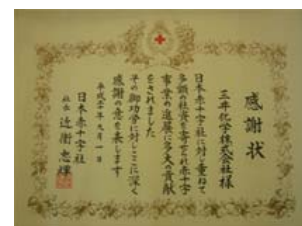 感謝状
三井化学株式会社様
日本赤十字社に対し重ねて
多額の社資を寄せられ赤十字
事業の進展に多大の貢献
をされました
その御功労に対しここに深く
感謝の意を表します
年九月一日
日本赤十字社
社長 近衛忠煇